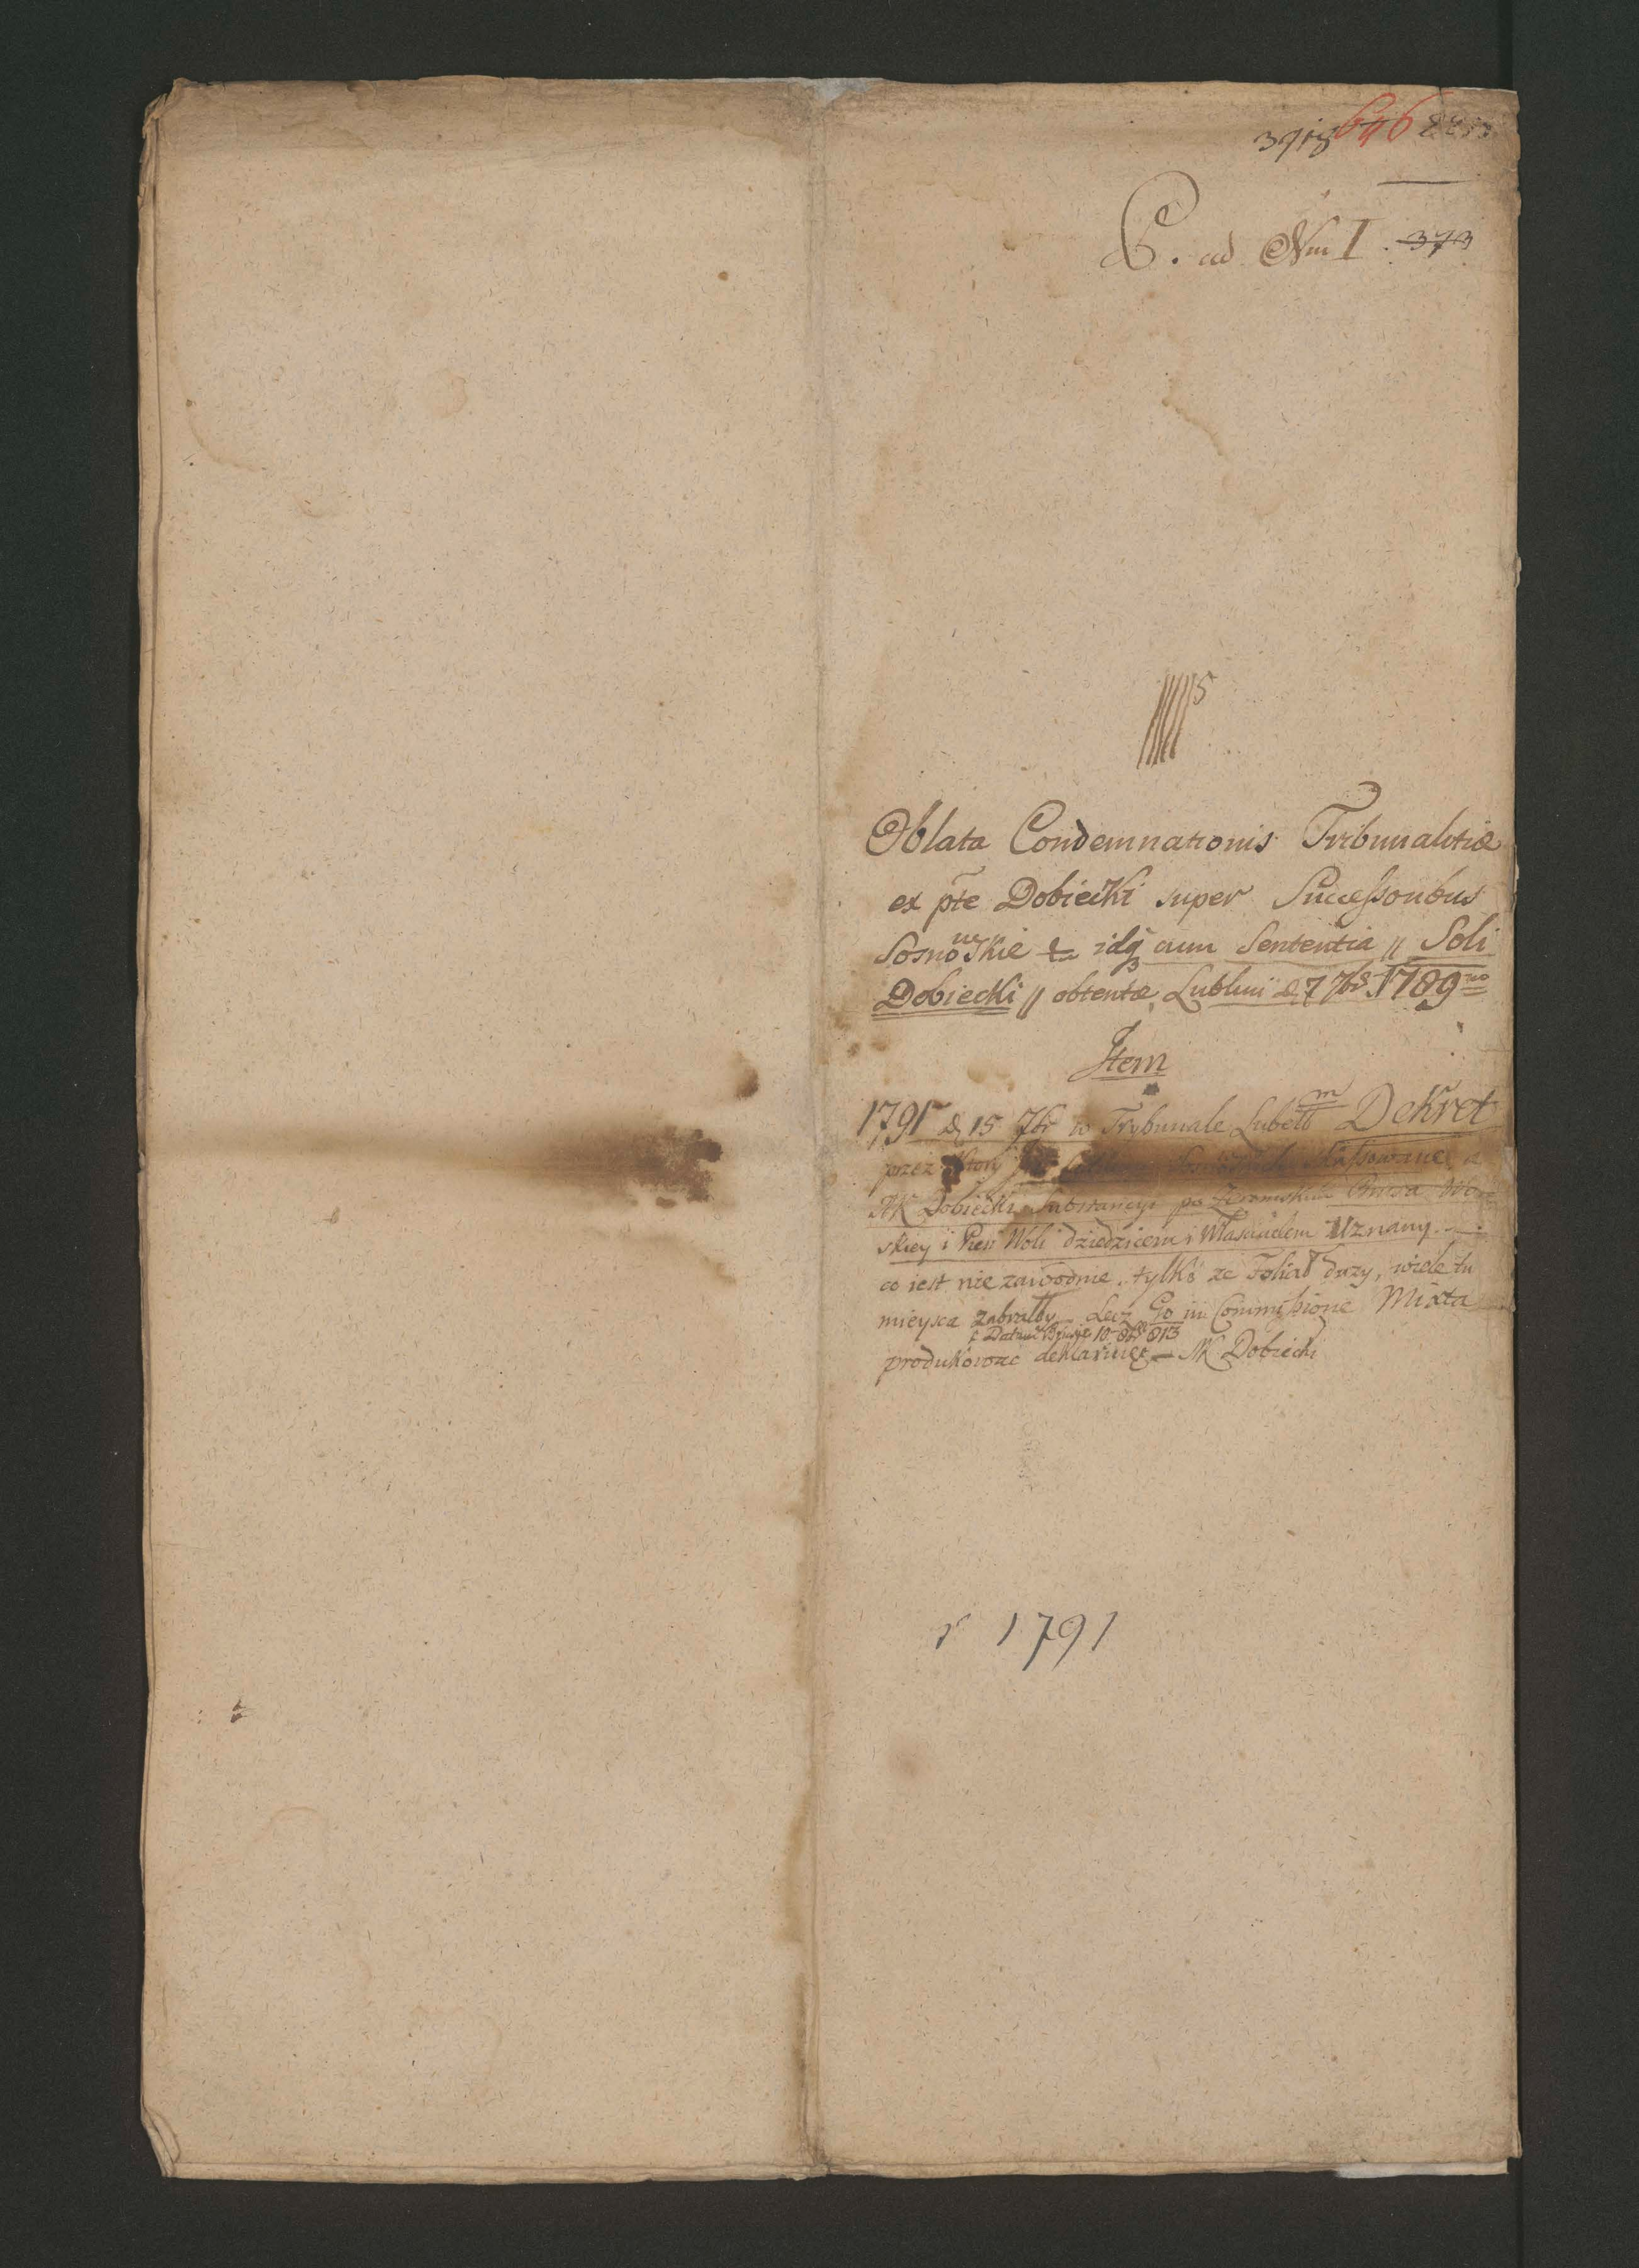 646
C. ad Nm I. 373
5
Oblata Condemnationis Tribunalitiæ
ex pte Dobiecki super Successoribus
Sosnowskie idq cum Sententia // Soli
Dobiecki // obtentæ Lublini d. 7 7br 1789no
Item
1791 d. 15 7br w Trybunale Lubelt m DeKret
przez Ktory skassowane a
NK Dobiecki Substancyi po Zeromskim
skiey i Pien Woli dziedzicem i Włascicielem Uznany. —
co iest nie zawodnie. tylko ze Foliał duzy, wiele tu
mieysca zabrałby — Lecz Go in Commissione Mixta
10 8br 813
produkowac deklaruię — NK Dobiecki
r 1791